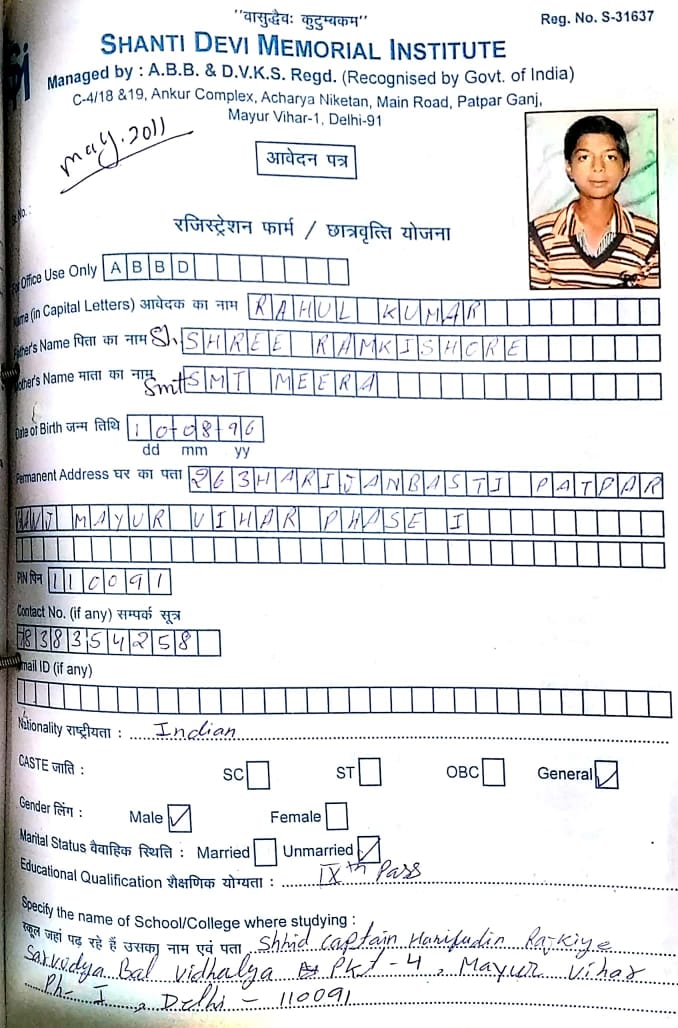 "वासुद्धैवः कुटुम्बकम"
Reg. No. S-31637
SHANTI DEVI MEMORIAL INSTITUTE
Managed by : A.B.B. & D.V.K.S. Regd. (Recognised by Govt. of India)
C-4/18 &19, Ankur Complex, Acharya Niketan, Main Road, Patpar Ganj,
Mayur Vihar-1, Delhi-91
may.2011
आवेदन पत्र
No. :
रजिस्ट्रेशन फार्म / छात्रवृत्ति योजना
For Office Use Only ABBD
Name (in Capital Letters) आवेदक का नाम RAHUL KUMAR
Father's Name पिता का नाम Sh. SHREE RAMKISHORE
Mother's Name माता का नाम Smt SMT MEERA
Date of Birth जन्म तिथि 10-08-96
dd mm yy
Permanent Address घर का पता 263HARIJANBASTI PATPAR
GANJ MAYUR VIHAR PHASE I
PIN पिन 110091
Contact No. (if any) सम्पर्क सूत्र
838354258
Email ID (if any)
Nationality राष्ट्रीयता : Indian
CASTE जाति : SC ST OBC General ✓
Gender लिंग : Male ✓ Female
Marital Status वैवाहिक स्थिति : Married Unmarried ✓
Educational Qualification शैक्षणिक योग्यता : IXth Pass
Specify the name of School/College where studying :
स्कूल जहां पढ़ रहे हैं उसका नाम एवं पता Shhid Captain Hanifudin Rajkiye
Sarvodya Bal Vidhalya Pkt-4, Mayur Vihar
Ph-I, Delhi-110091